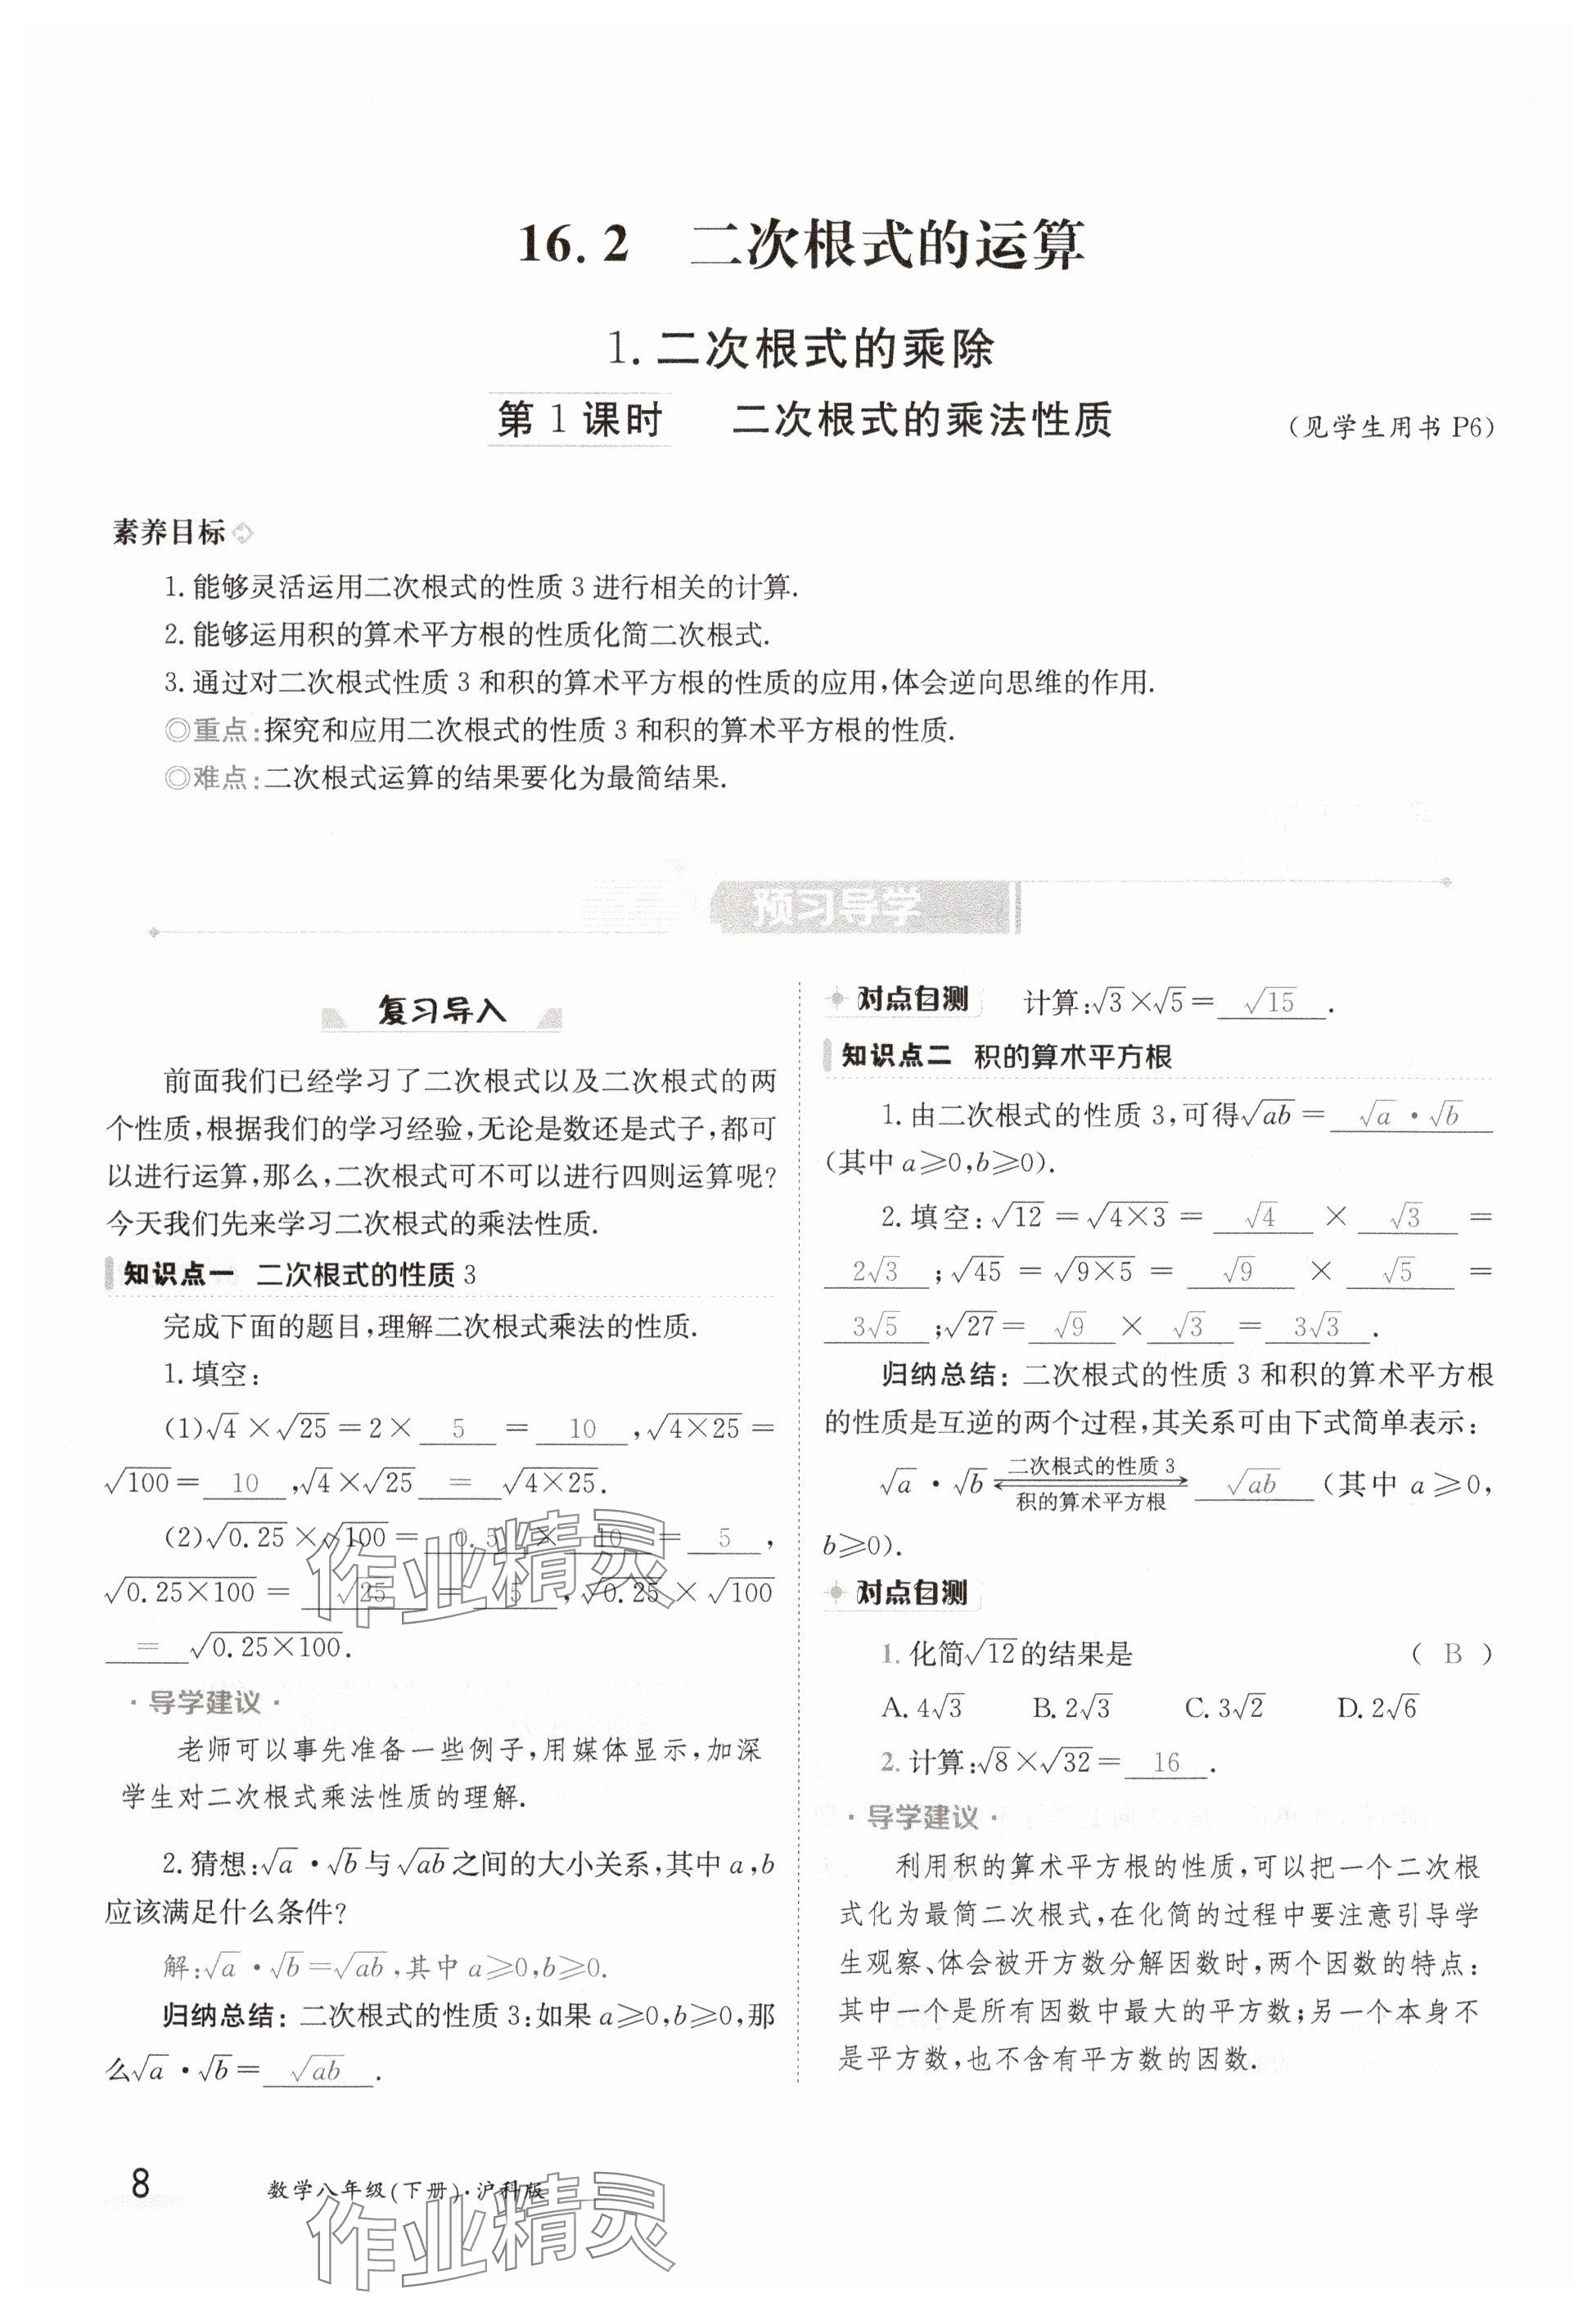 16.2 二次根式的运算
1.二次根式的乘除
第1课时 二次根式的乘法性质 (见学生用书 P6)
素养目标
1.能够灵活运用二次根式的性质 3 进行相关的计算.
2.能够运用积的算术平方根的性质化简二次根式.
3.通过对二次根式性质 3 和积的算术平方根的性质的应用,体会逆向思维的作用.
◎重点:探究和应用二次根式的性质 3 和积的算术平方根的性质.
◎难点:二次根式运算的结果要化为最简结果.
预习导学
复习导入
前面我们已经学习了二次根式以及二次根式的两
个性质,根据我们的学习经验,无论是数还是式子,都可
以进行运算,那么,二次根式可不可以进行四则运算呢?
今天我们先来学习二次根式的乘法性质.
知识点一 二次根式的性质 3
完成下面的题目,理解二次根式乘法的性质.
1.填空:
(1)√4×√25=2× 5 = 10 ,√(4×25)=
√100= 10 ,√4×√25 = √(4×25).
(2)√0.25×√100= 0.5 × 10 = 5 ,
√(0.25×100)= √25 = 5 ,√0.25×√100
= √(0.25×100).
·导学建议·
老师可以事先准备一些例子,用媒体显示,加深
学生对二次根式乘法性质的理解.
2.猜想:√a·√b与√ab之间的大小关系,其中 a,b
应该满足什么条件?
解:√a·√b=√ab,其中 a≥0,b≥0.
归纳总结:二次根式的性质 3:如果 a≥0,b≥0,那
么√a·√b= √ab .
对点自测 计算:√3×√5= √15 .
知识点二 积的算术平方根
1.由二次根式的性质 3,可得√ab= √a·√b
(其中 a≥0,b≥0).
2.填空:√12=√(4×3)= √4 × √3 =
2√3 ;√45=√(9×5)= √9 × √5 =
3√5 ;√27= √9 × √3 = 3√3 .
归纳总结:二次根式的性质 3 和积的算术平方根
的性质是互逆的两个过程,其关系可由下式简单表示:
二次根式的性质 3
√a·√b⇌ √ab (其中 a≥0,
积的算术平方根
b≥0).
对点自测
1.化简√12的结果是 ( B )
A.4√3 B.2√3 C.3√2 D.2√6
2.计算:√8×√32= 16 .
·导学建议·
利用积的算术平方根的性质,可以把一个二次根
式化为最简二次根式,在化简的过程中要注意引导学
生观察、体会被开方数分解因数时,两个因数的特点:
其中一个是所有因数中最大的平方数;另一个本身不
是平方数,也不含有平方数的因数.
作业精灵
8 数学八年级(下册)·沪科版
作业精灵